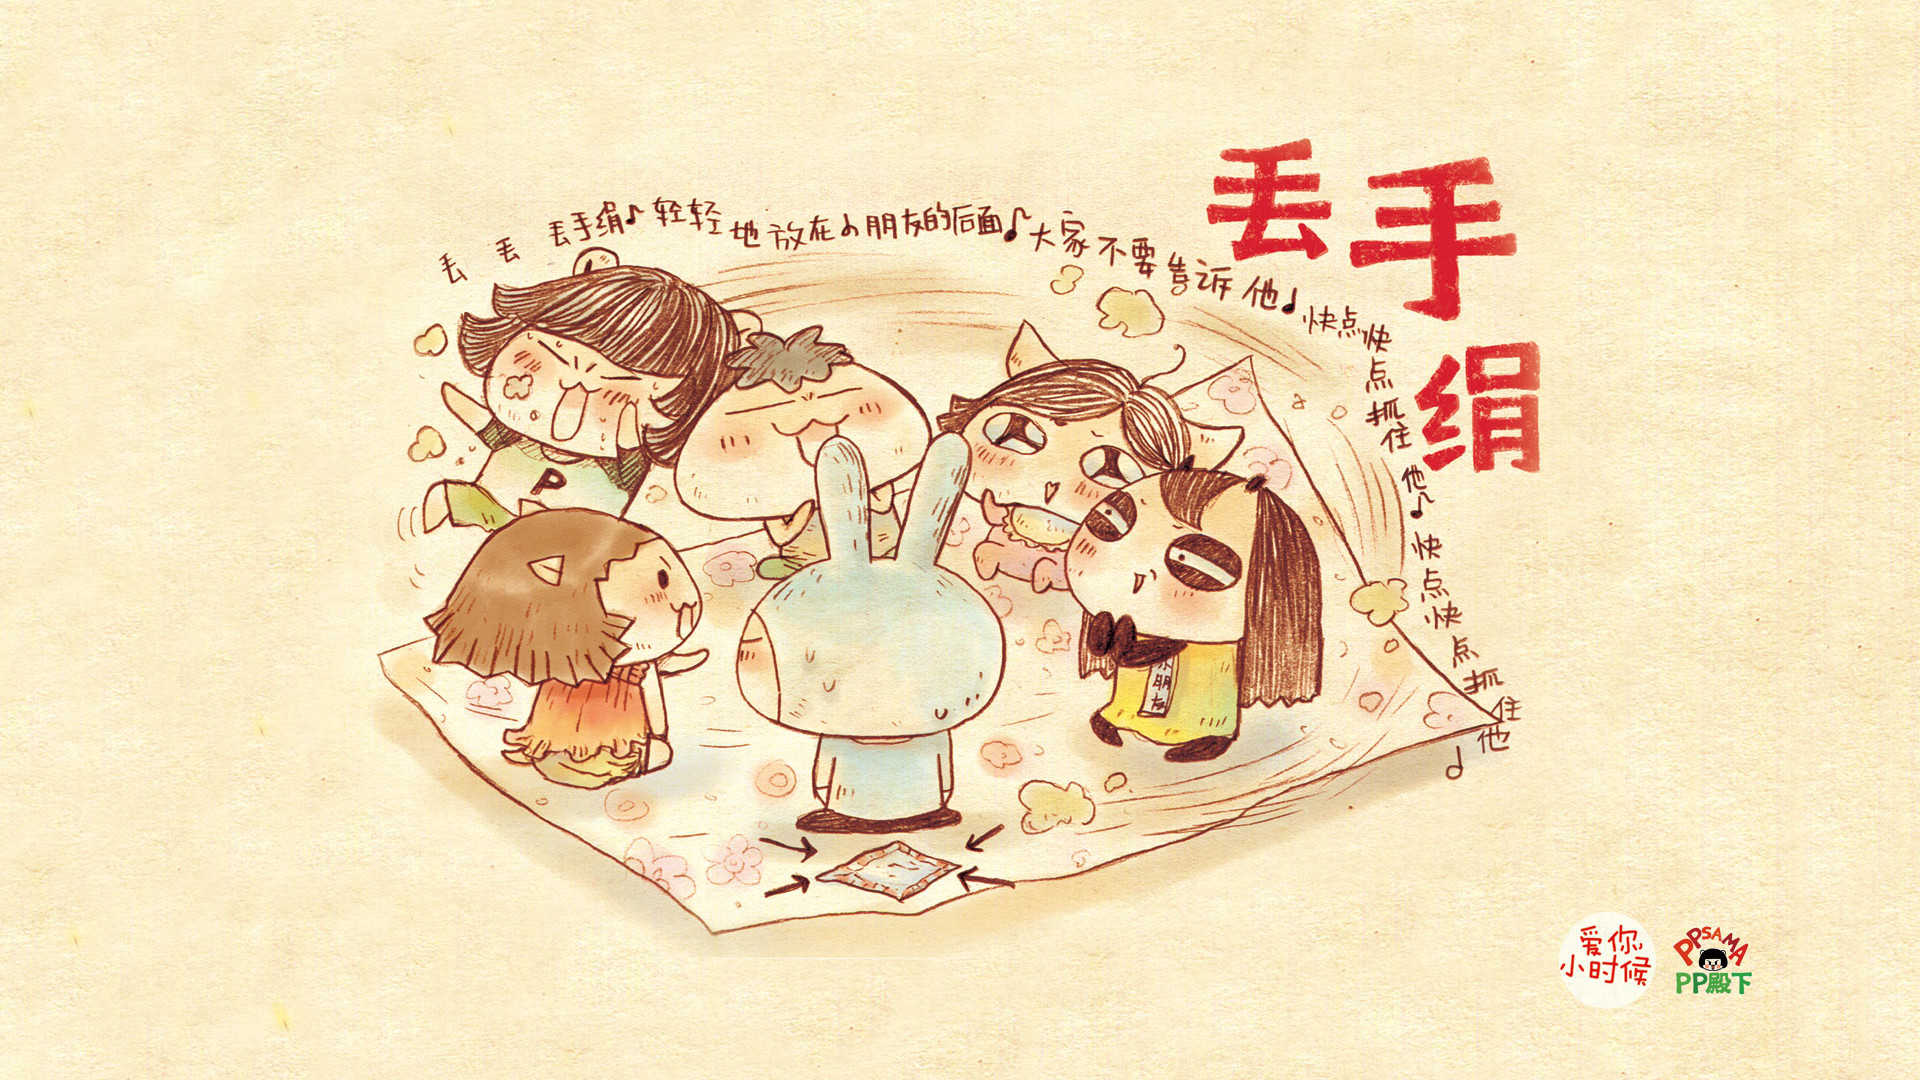 丢手绢
丢丢丢手绢♪轻轻地放在小朋友的后面♪大家不要告诉他♩快点快点抓住他♪快点快点抓住他♩
P
小朋友
爱你
小时候
PPSAMA
PP殿下